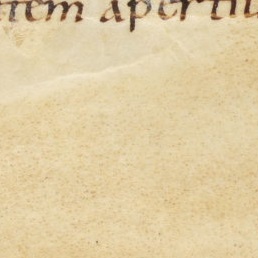 item apertiu